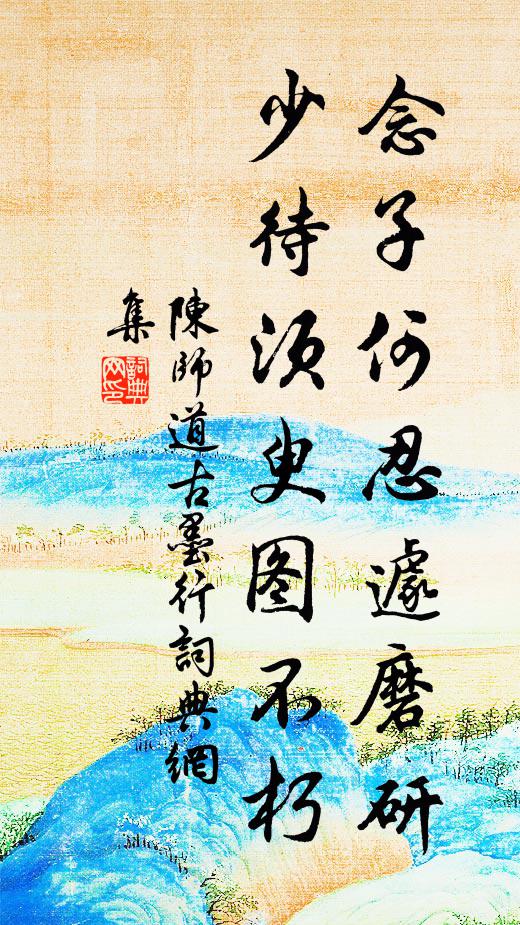 念子何忍遽磨研
少待須臾图不朽
陳師道古墨行詞典網
集
詞典
网印